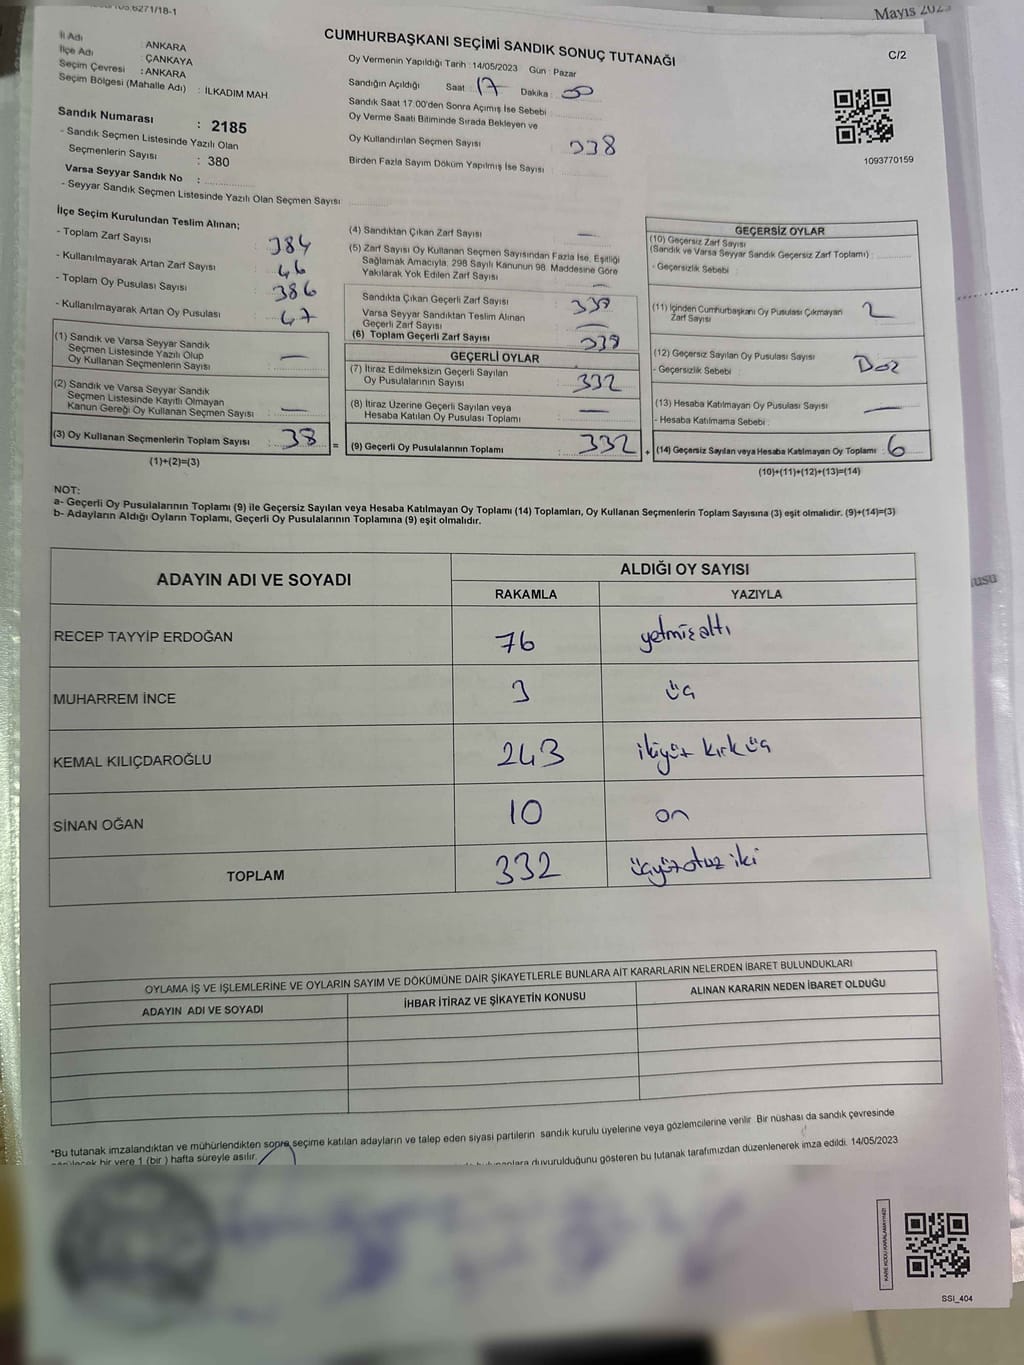 6271/18-1
Mayıs
İl Adı : ANKARA
İlçe Adı : ÇANKAYA
Seçim Çevresi : ANKARA
Seçim Bölgesi (Mahalle Adı) : İLKADIM MAH
Sandık Numarası : 2185
- Sandık Seçmen Listesinde Yazılı Olan
Seçmenlerin Sayısı : 380
Varsa Seyyar Sandık No :
- Seyyar Sandık Seçmen Listesinde Yazılı Olan Seçmen Sayısı
CUMHURBAŞKANI SEÇİMİ SANDIK SONUÇ TUTANAĞI
C/2
Oy Vermenin Yapıldığı Tarih : 14/05/2023 Gün : Pazar
Sandığın Açıldığı Saat : 17 Dakika : 00
Sandık Saat 17:00'den Sonra Açımış İse Sebebi :
Oy Verme Saati Bitiminde Sırada Bekleyen ve
Oy Kullandırılan Seçmen Sayısı 338
Birden Fazla Sayım Döküm Yapılmış İse Sayısı
1093770159
İlçe Seçim Kurulundan Teslim Alınan;
- Toplam Zarf Sayısı : 384
- Kullanılmayarak Artan Zarf Sayısı : 46
- Toplam Oy Pusulası Sayısı : 386
- Kullanılmayarak Artan Oy Pusulası : 47
(1) Sandık ve Varsa Seyyar Sandık
Seçmen Listesinde Yazılı Olup
Oy Kullanan Seçmenlerin Sayısı : —
(2) Sandık ve Varsa Seyyar Sandık
Seçmen Listesinde Kayıtlı Olmayan
Kanun Gereği Oy Kullanan Seçmen Sayısı : —
(3) Oy Kullanan Seçmenlerin Toplam Sayısı : 38 =
(1)+(2)=(3)
(4) Sandıktan Çıkan Zarf Sayısı —
(5) Zarf Sayısı Oy Kullanan Seçmen Sayısından Fazla İse, Eşitliği
Sağlamak Amacıyla, 298 Sayılı Kanunun 98. Maddesine Göre
Yakılarak Yok Edilen Zarf Sayısı —
Sandıkta Çıkan Geçerli Zarf Sayısı 338
Varsa Seyyar Sandıktan Teslim Alınan
Geçerli Zarf Sayısı —
(6) Toplam Geçerli Zarf Sayısı 338
GEÇERLİ OYLAR
(7) İtiraz Edilmeksizin Geçerli Sayılan
Oy Pusulalarının Sayısı 332
(8) İtiraz Üzerine Geçerli Sayılan veya
Hesaba Katılan Oy Pusulası Toplamı —
(9) Geçerli Oy Pusulalarının Toplamı : 332 +
GEÇERSİZ OYLAR
(10) Geçersiz Zarf Sayısı
(Sandık ve Varsa Seyyar Sandık Geçersiz Zarf Toplamı) :
- Geçersizlik Sebebi :
(11) İçinden Cumhurbaşkanı Oy Pusulası Çıkmayan
Zarf Sayısı 2
(12) Geçersiz Sayılan Oy Pusulası Sayısı
- Geçersizlik Sebebi :
(13) Hesaba Katılmayan Oy Pusulası Sayısı —
- Hesaba Katılmama Sebebi :
(14) Geçersiz Sayılan veya Hesaba Katılmayan Oy Toplamı : 6
(10)+(11)+(12)+(13)=(14)
NOT:
a- Geçerli Oy Pusulalarının Toplamı (9) ile Geçersiz Sayılan veya Hesaba Katılmayan Oy Toplamı (14) Toplamları, Oy Kullanan Seçmenlerin Toplam Sayısına (3) eşit olmalıdır. (9)+(14)=(3)
b- Adayların Aldığı Oyların Toplamı, Geçerli Oy Pusulalarının Toplamına (9) eşit olmalıdır.
ADAYIN ADI VE SOYADI ALDIĞI OY SAYISI
RAKAMLA YAZIYLA
RECEP TAYYİP ERDOĞAN 76 yetmişaltı
MUHARREM İNCE 3 üç
KEMAL KILIÇDAROĞLU 243 ikiyüz kırk üç
SİNAN OĞAN 10 on
TOPLAM 332 üçyüzotuz iki
OYLAMA İŞ VE İŞLEMLERİNE VE OYLARIN SAYIM VE DÖKÜMÜNE DAİR ŞİKAYETLERLE BUNLARA AİT KARARLARIN NELERDEN İBARET BULUNDUKLARI
ADAYIN ADI VE SOYADI İHBAR İTİRAZ VE ŞİKAYETİN KONUSU ALINAN KARARIN NEDEN İBARET OLDUĞU
*Bu tutanak imzalandıktan ve mühürlendikten sonra seçime katılan adayların ve talep eden siyasi partilerin sandık kurulu üyelerine veya gözlemcilerine verilir. Bir nüshası da sandık çevresinde
bir yere 1 (bir ) hafta süreyle asılır. duyurulduğunu gösteren bu tutanak tarafımızdan düzenlenerek imza edildi. 14/05/2023
SSI_404